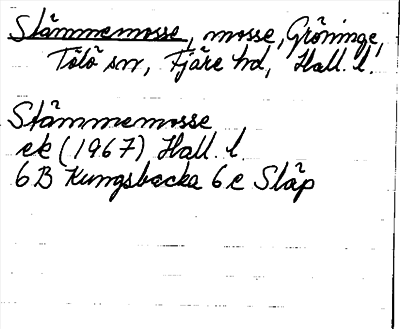 Stämmemosse, mosse, Gröninge,
Tölö sn, Fjäre hd, Hall. l.
Stämmemosse
ek (1967) Hall. l.
6B Kungsbacka 6e Släp